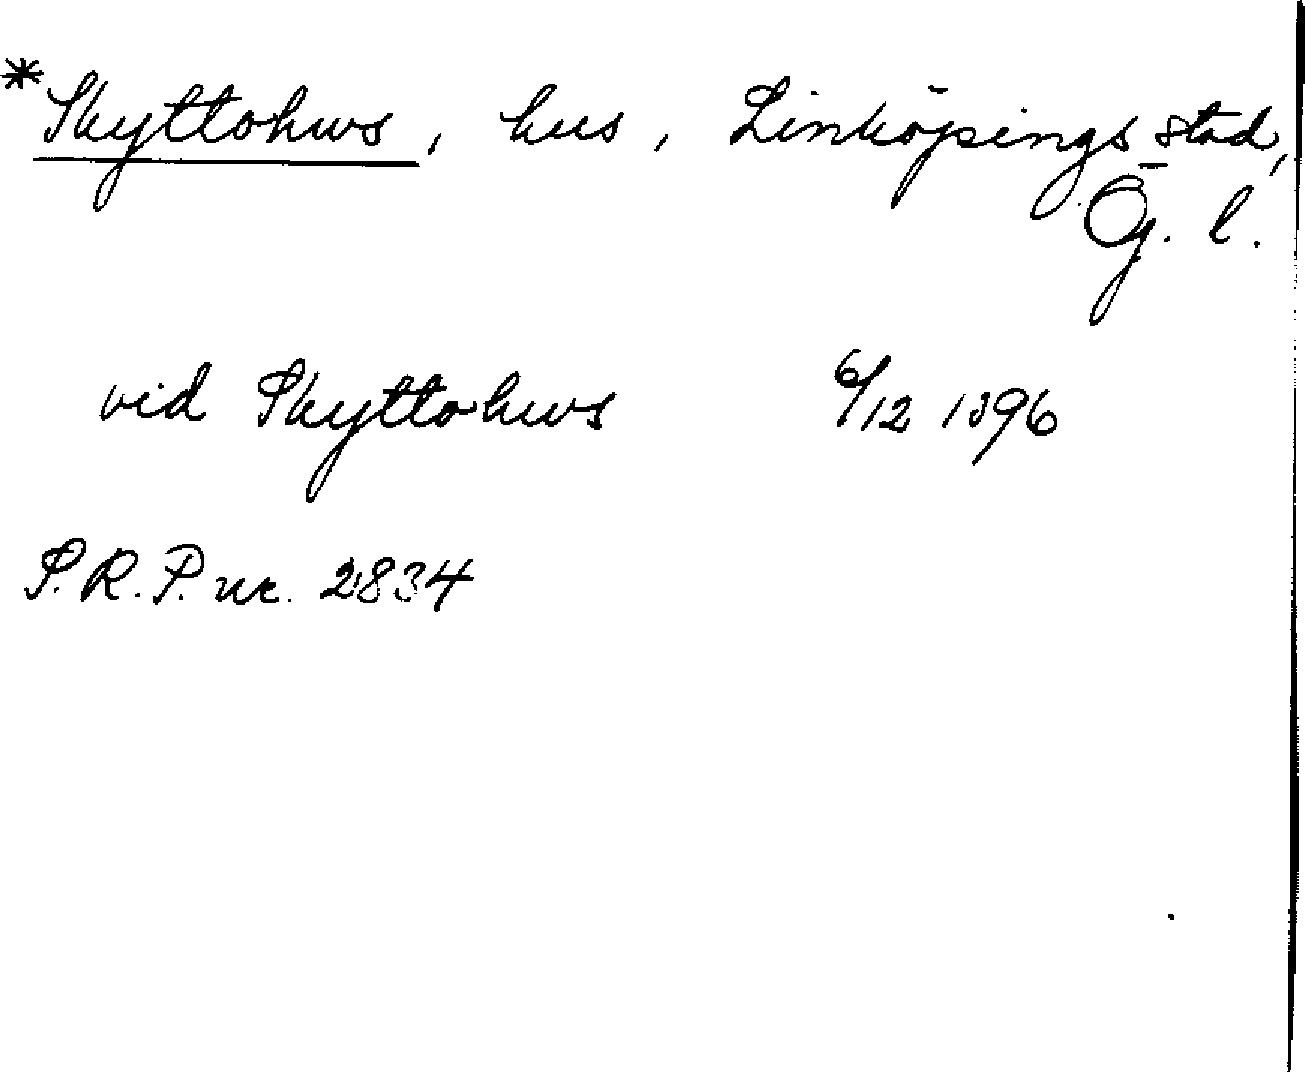 *Skyttohws, hus, Linköpings stad,
Ög. l.
vid Skyttohws 6/12 1396
S.R.P. nr. 2834